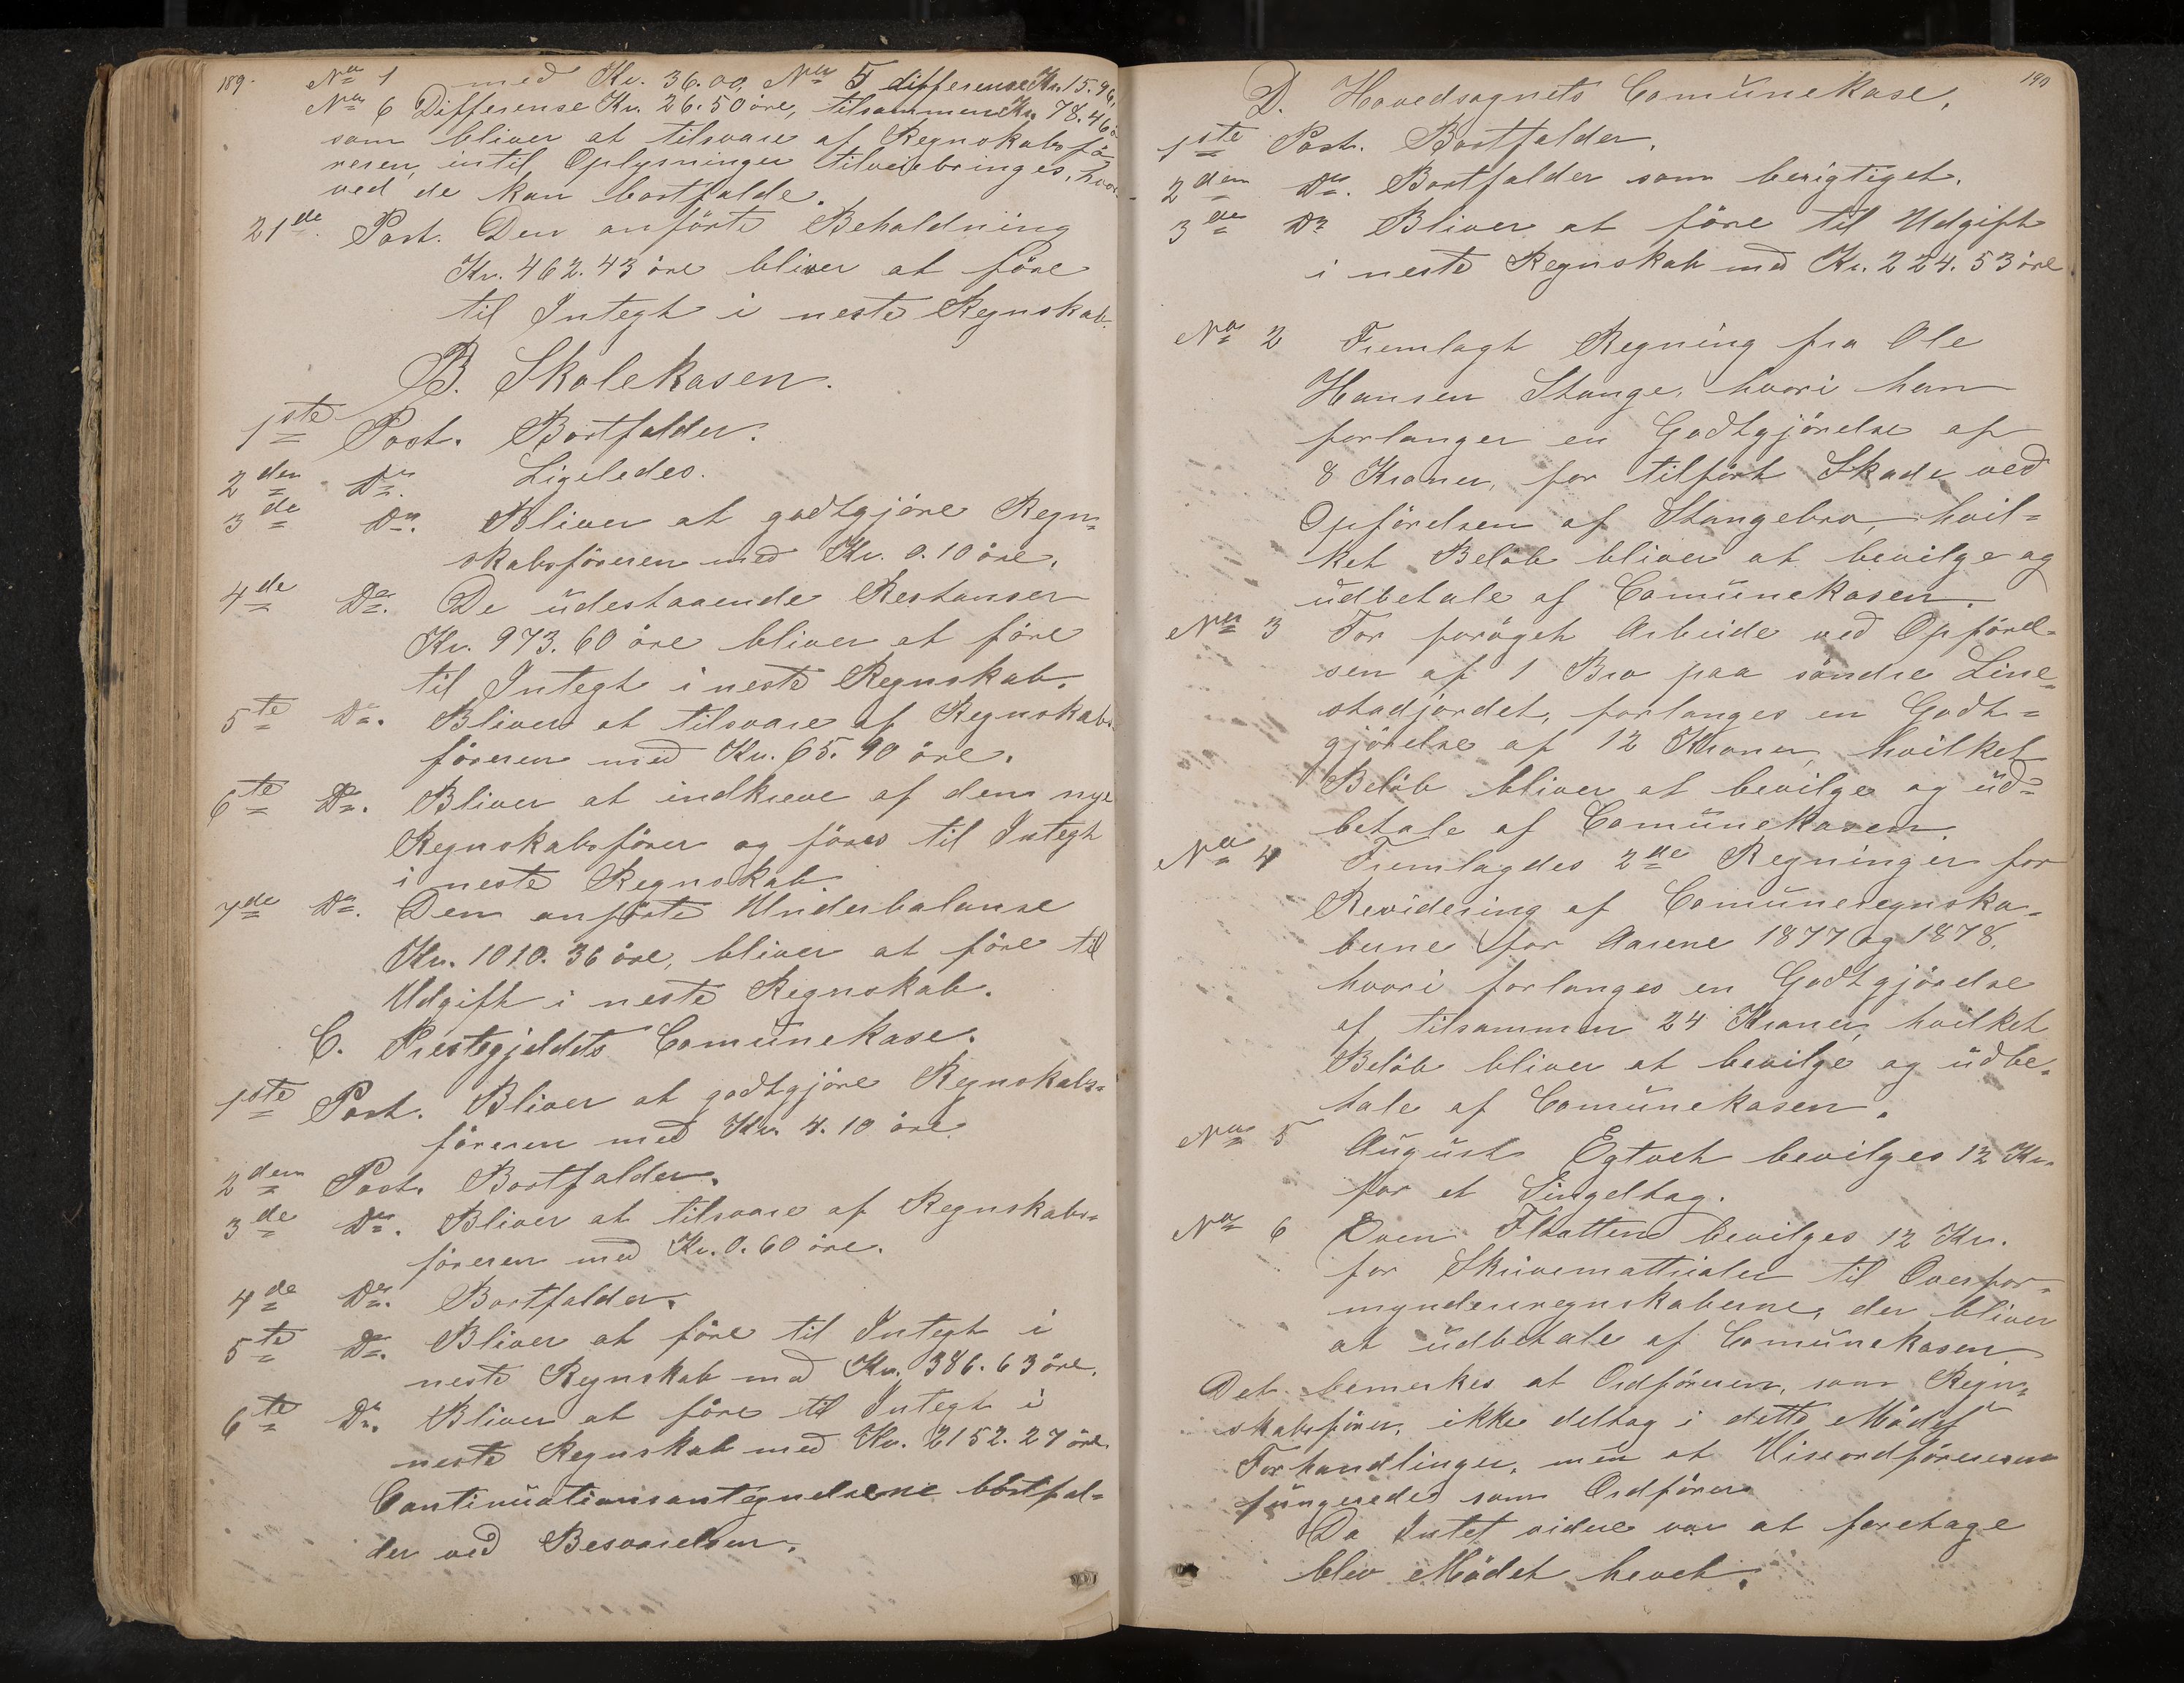 189.
No 1 med Kr. 36.00, No 5 differense Kr. 15.96,
No 6 Differense Kr. 26.50 öre, tilsammen Kr. 78.46 ö
som bliver at tilsvare af Regnskabsfö-
reren, intil Oplysninger tilveiebringes, hvor-
ved de kan bortfalde.
21de Post. Den anförte Beholdning
Kr. 462.43 öre bliver at före
til Integt i neste Regnskab.
B. Skolekasen.
1ste Post. Bortfalder.
2den Do. Ligeledes.
3de Do. Bliver at godtgjöre Regn=
skabsföreren med Kr. 0.10 öre.
4de Do. De üdestaaende Restanser
Kr. 973.60 öre bliver at före
til Integt i neste Regnskab.
5te Do. Bliver at tilsvare af Regnskabs-
föreren med Kr. 65.90 öre.
6te Do. Bliver at indkreve af den nye
Regnskabsförer og föres til Integt
i neste Regnskab.
7de Do. Den anförte Underbalanse
Kr. 1010.36 öre, bliver at före til
Udgift i neste Regnskab.
C. Prestegjeldets Comünekase.
1ste Post. Bliver at godtgjöre Regnskabs=
föreren med Kr. 4.10 öre.
2den Post. Bortfalder.
3de Do. Bliver at tilsvare af Regnskabs=
föreren med Kr. 0.60 öre.
4de Do. Bortfalder.
5te Do. Bliver at före til Integt i
neste Regnskab med Kr. 386.63 öre.
6te Do. Bliver at före til Integt i
neste Regnskab med Kr. 2152.27 öre.
Continüationsantegnelserne bortfal=
der ved Besvarelsen.
190
D. Hovedsognets Comünekase.
1ste Post. Bortfalder.
2den Do. Bortfalder som berigtiget.
3de Do Bliver at före til Udgift
i neste Regnskab med Kr. 224.53 öre
No 2 Fremlagt Regning fra Ole
Hansen Stange, hvori han
forlanger en Godtgjörelse af
8 Kroner, for tilfört Skade ved
Opförelsen af Stangebro, hvil=
ket Belöb bliver at bevilge og
üdbetale af Comünekasen.
No 3 For foröget Arbeide ved Opförel-
sen af 1 Bro paa söndre Line-
stadjordet, forlanges en Godt=
gjörelse af 12 Kroner, hvilket
Belöb bliver at bevilge og üd=
betale af Comünekasen.
No 4 Fremlagdes 2de Regninger for
Revidering af Comüneregnska-
berne for Aarene 1877 og 1878,
hvori forlanges en Godtgjörelse
af tilsammen 24 Kroner, hvilket
Belöb bliver at bevilge og üdbe-
tale af Comünekasen.
No 5 Aügust Egtvet bevilges 12 Kr.
for et Singeltag.
No 6 Oven Flaatten bevilges 12 Kr.
for Skrivemattrialer til Overfor-
mynderregnskaberne, der bliver
at üdbetale af Comünekasen.
Det bemerkes at Ordföreren, som Regn=
skabsförer, ikke deltog i dette Mödes
Forhandlinger, men at Viseordföreren
füngerede som Ordförer.
Da Intet videre var at foretage
blev Mödet hevet.